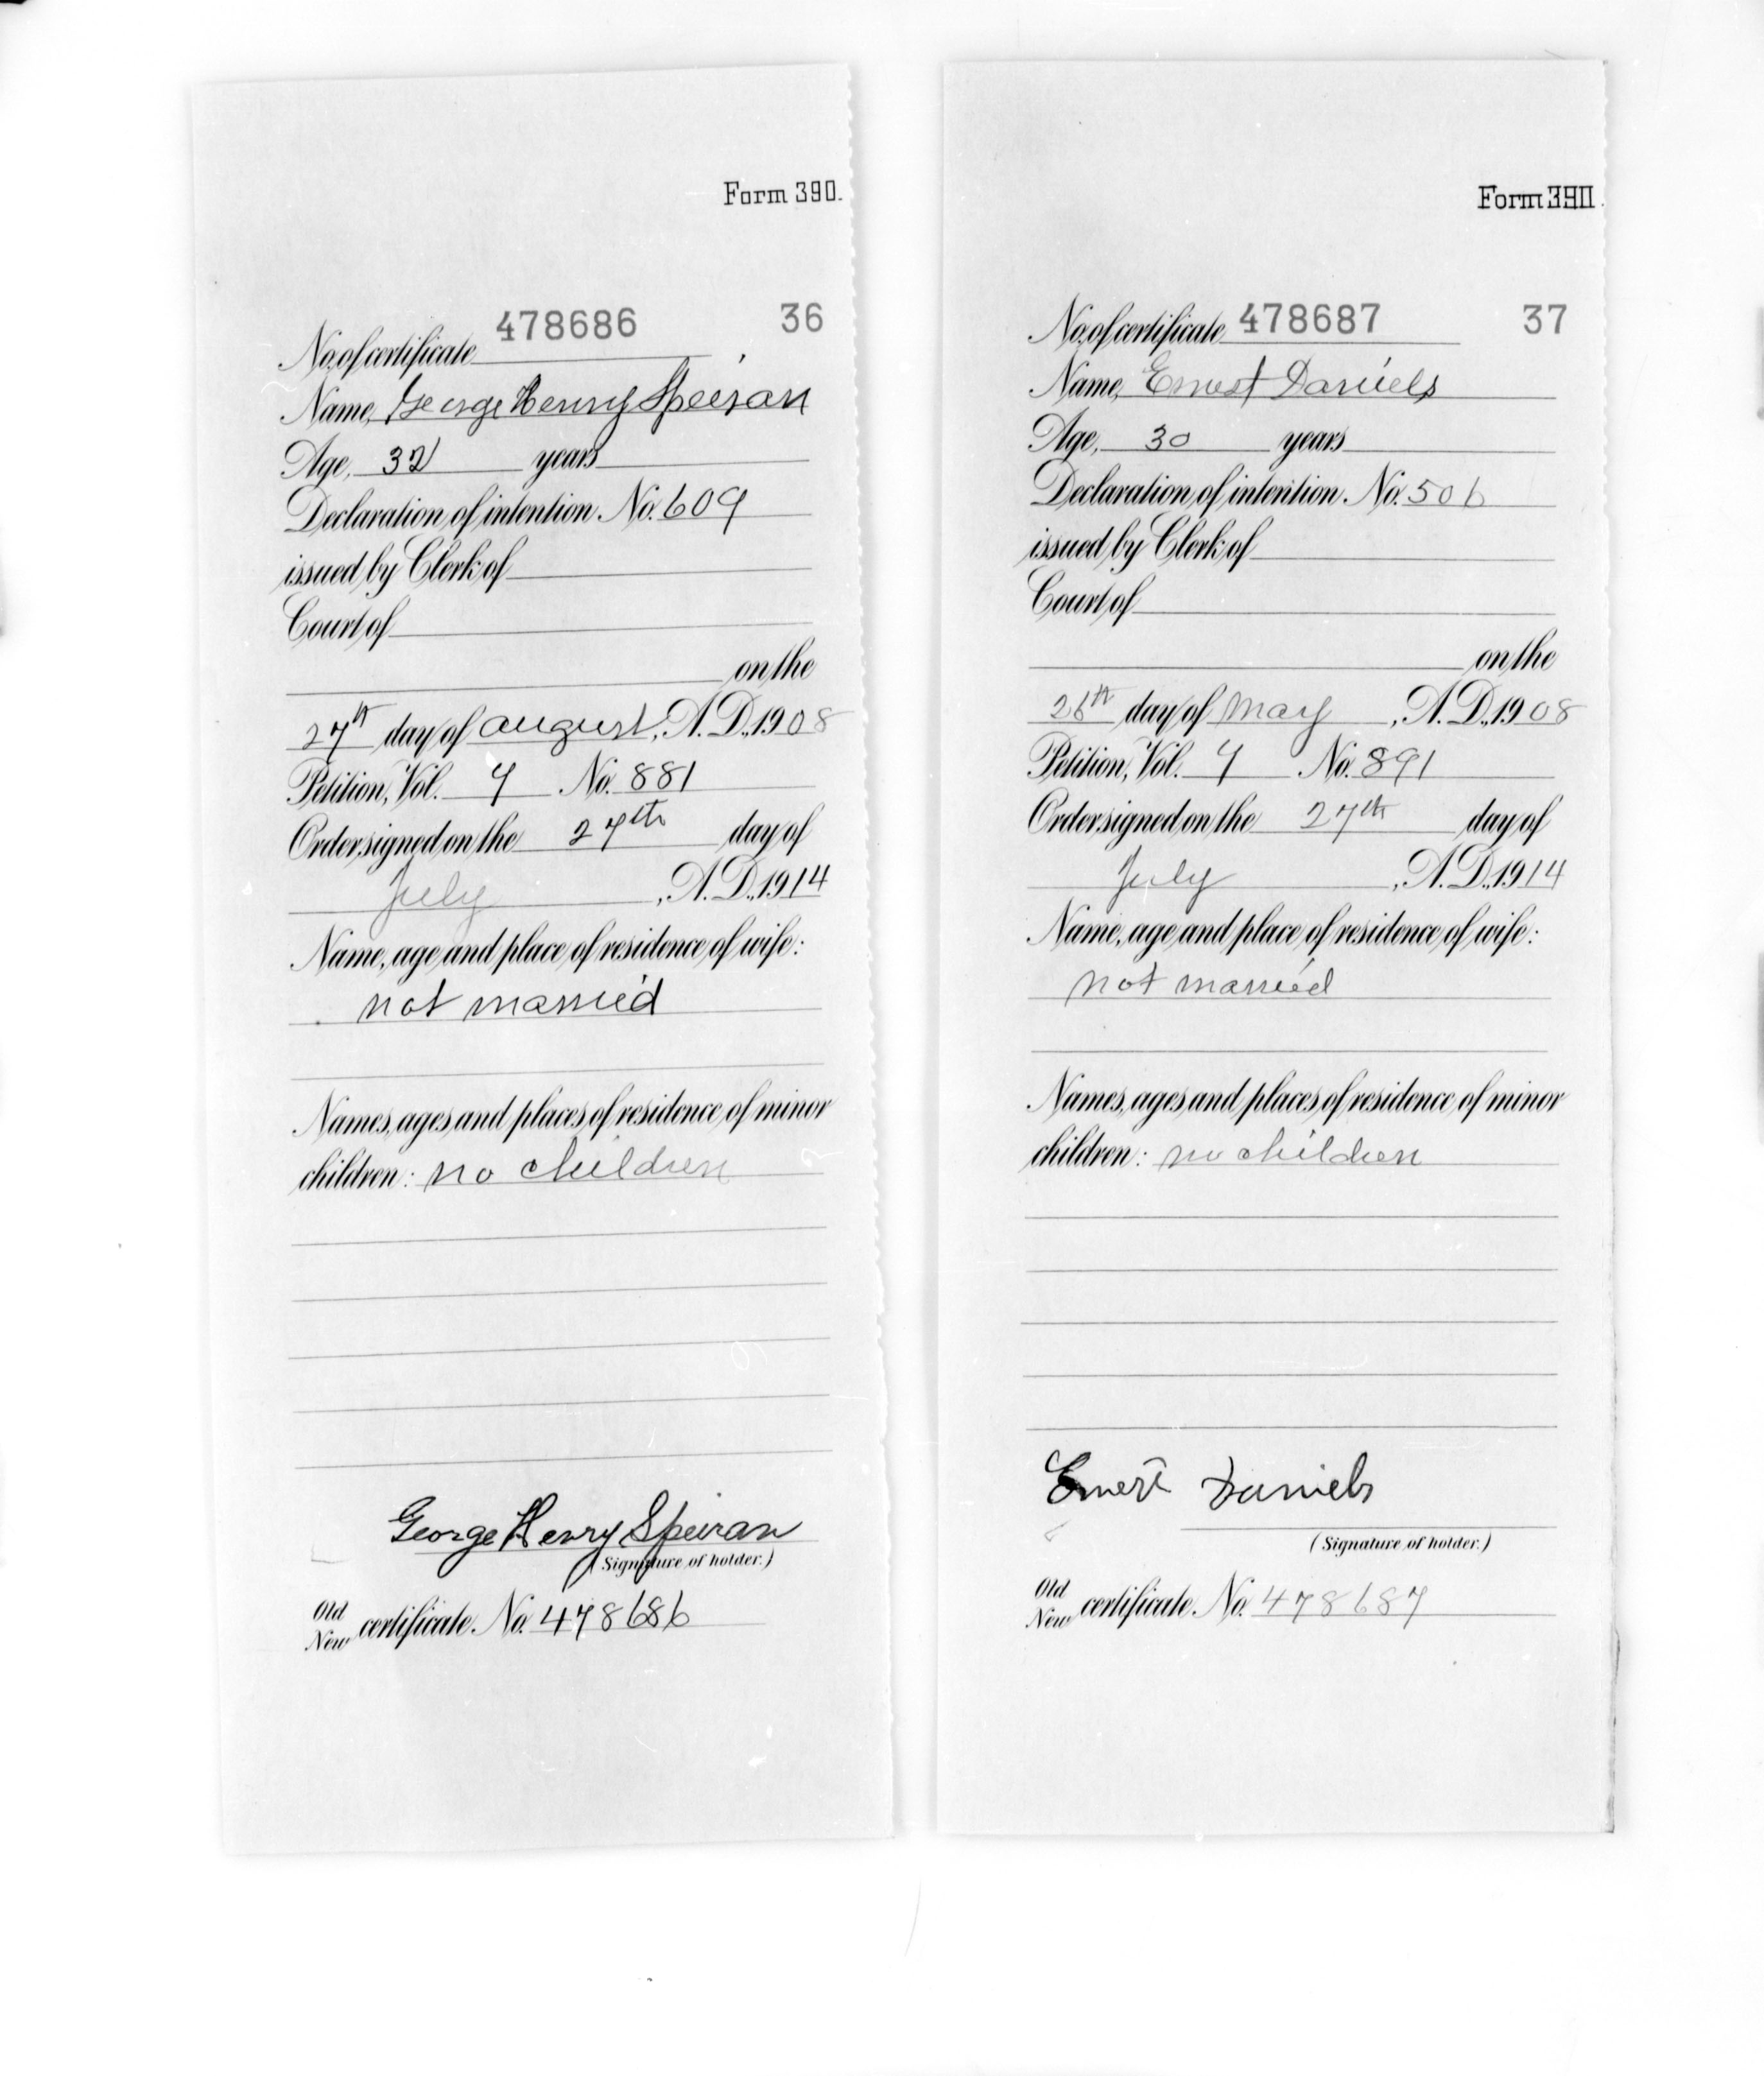 Form 390.
478686 36
No. of certificate
Name, George Henry Speiran
Age, 32 years
Declaration of intention. No. 609
issued by Clerk of
Court of
on the
27th day of august, A.D., 1908
Petition, Vol. 7 No. 881
Order signed on the 27th day of
July, A.D., 1914
Name, age and place of residence of wife:
not married
Names, ages and places of residence of minor
children: no children
George Henry Speiran
(Signature of holder.)
Old
New certificate. No. 478686
Form 390.
No. of certificate 478687 37
Name, Ernest Daniels
Age, 30 years
Declaration of intention. No. 506
issued by Clerk of
Court of
on the
26th day of May, A.D., 1908
Petition, Vol. 7 No. 891
Order signed on the 27th day of
July, A.D., 1914
Name, age and place of residence of wife:
not married
Names, ages and places of residence of minor
children: no children
Ernest Daniels
(Signature of holder.)
Old
New certificate. No. 478687